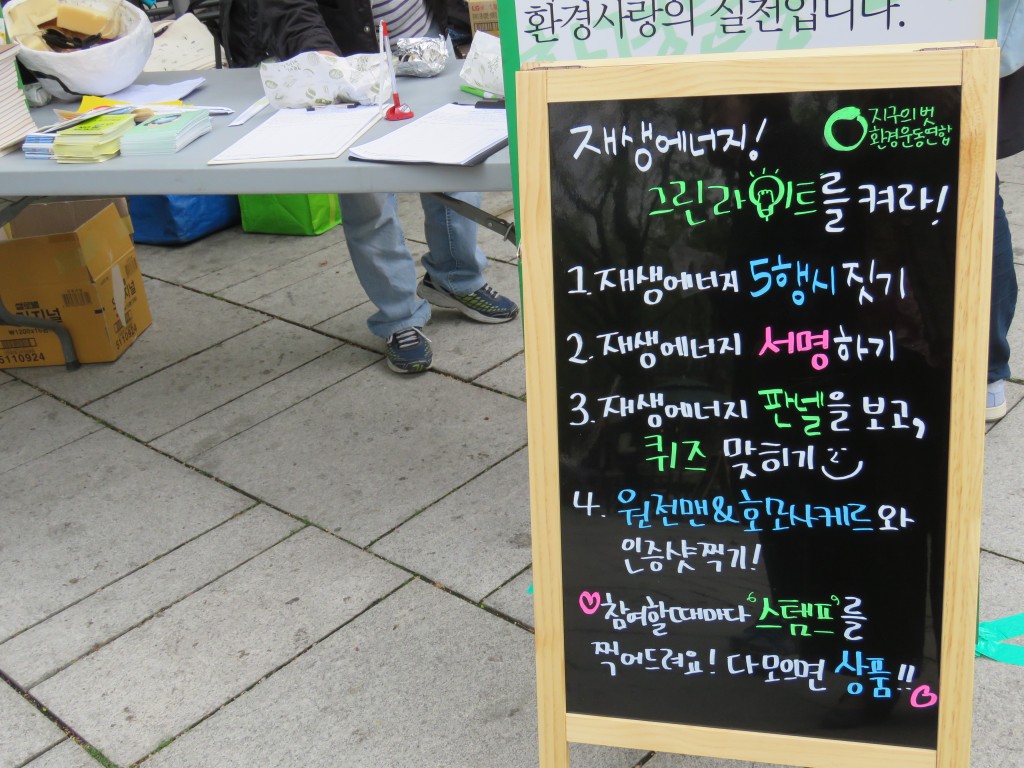 환경사랑의 실천입니다.
지구의 벗
환경운동연합
재생에너지!
그린라이트를 켜라!
1. 재생에너지 5행시 짓기
2. 재생에너지 서명하기
3. 재생에너지 판넬을 보고,
퀴즈 맞히기
4. 원전맨&호모사케르와
인증샷찍기!
참여할때마다 "스탬프"를
찍어드려요! 다모으면 상품!!
S110924